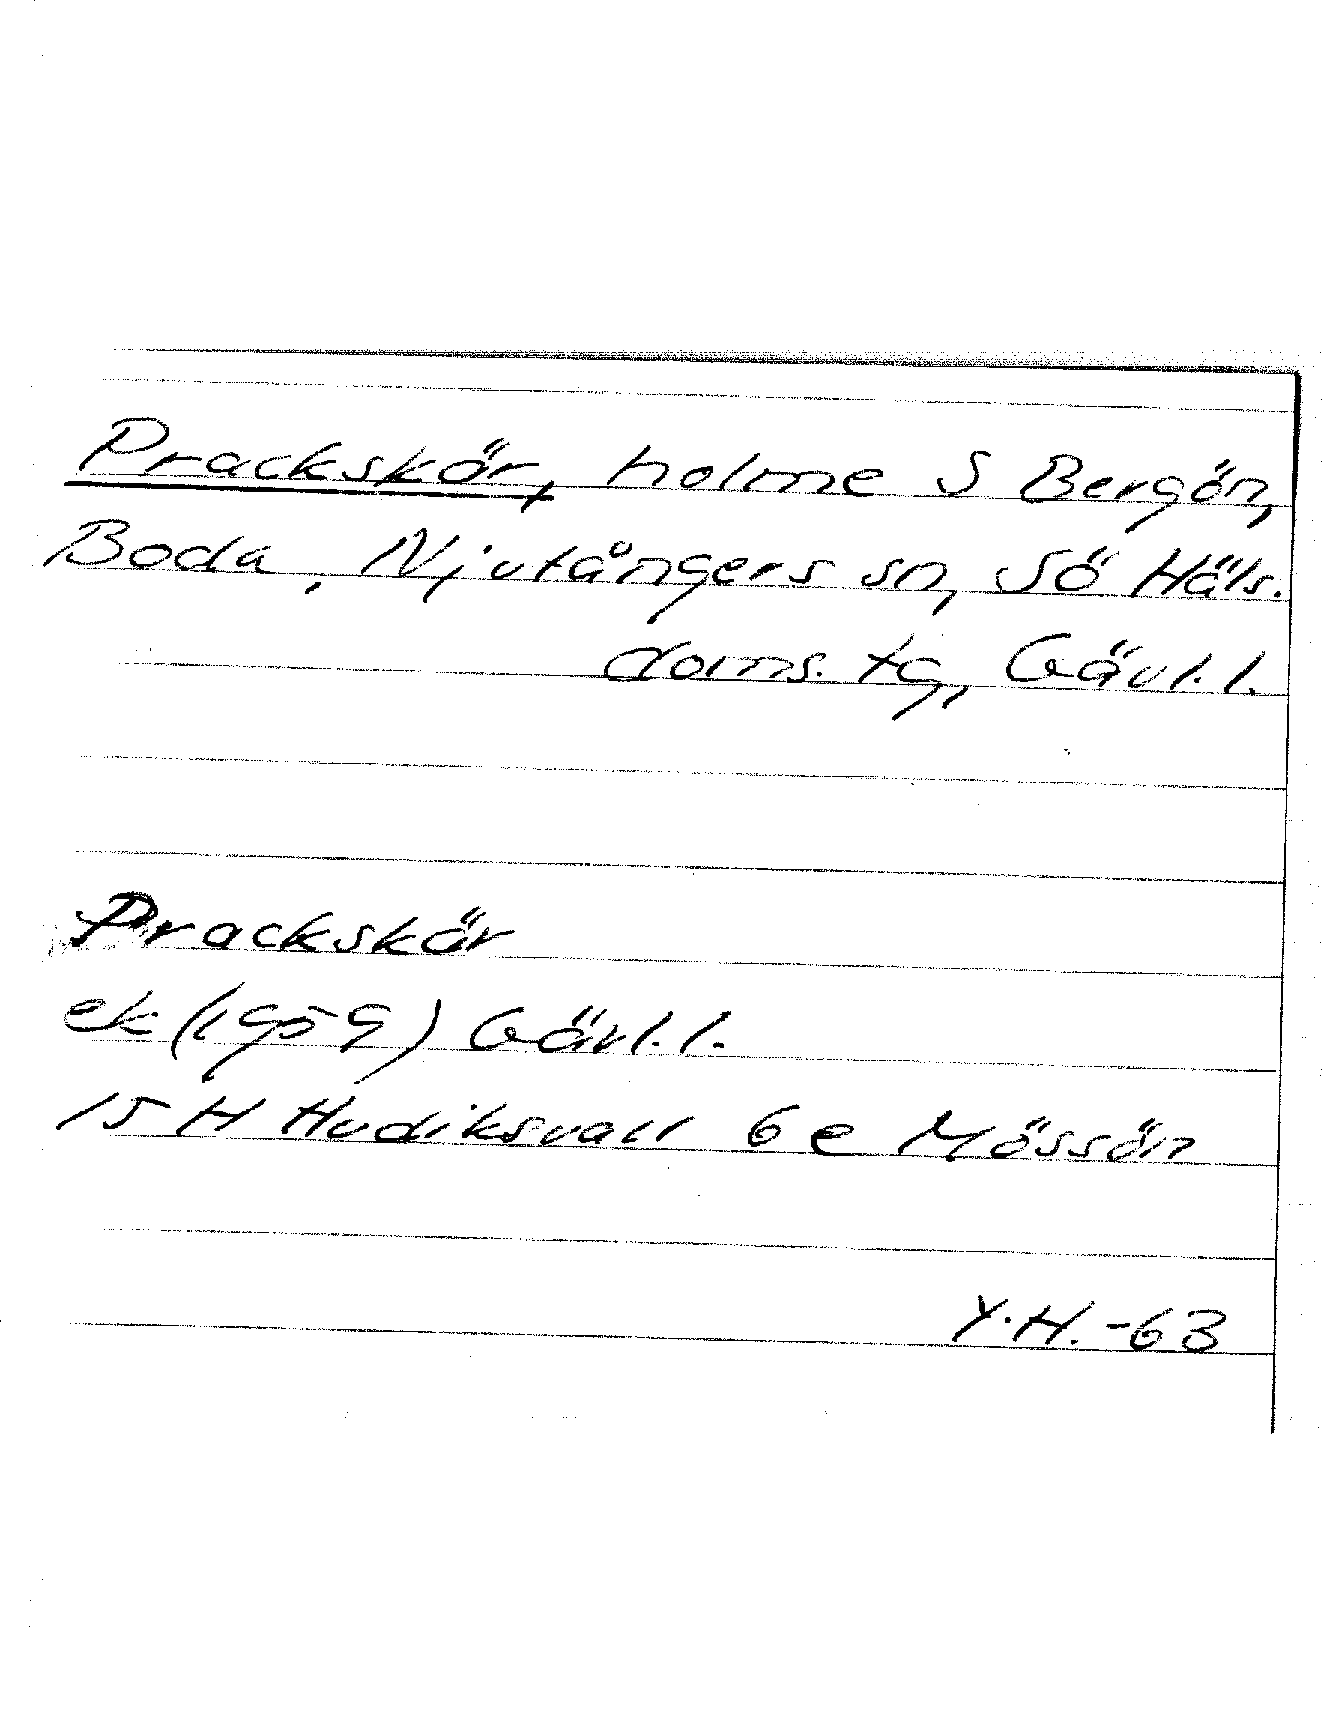 Prackskär, holme S Bergön,
Boda, Njutångers sn, Sö Häls.
doms. tg, Gävl. l.
Prackskär
ek (1959) Gävl. l.
15 H Hudiksvall 6 e Mössön
Y. H. -63